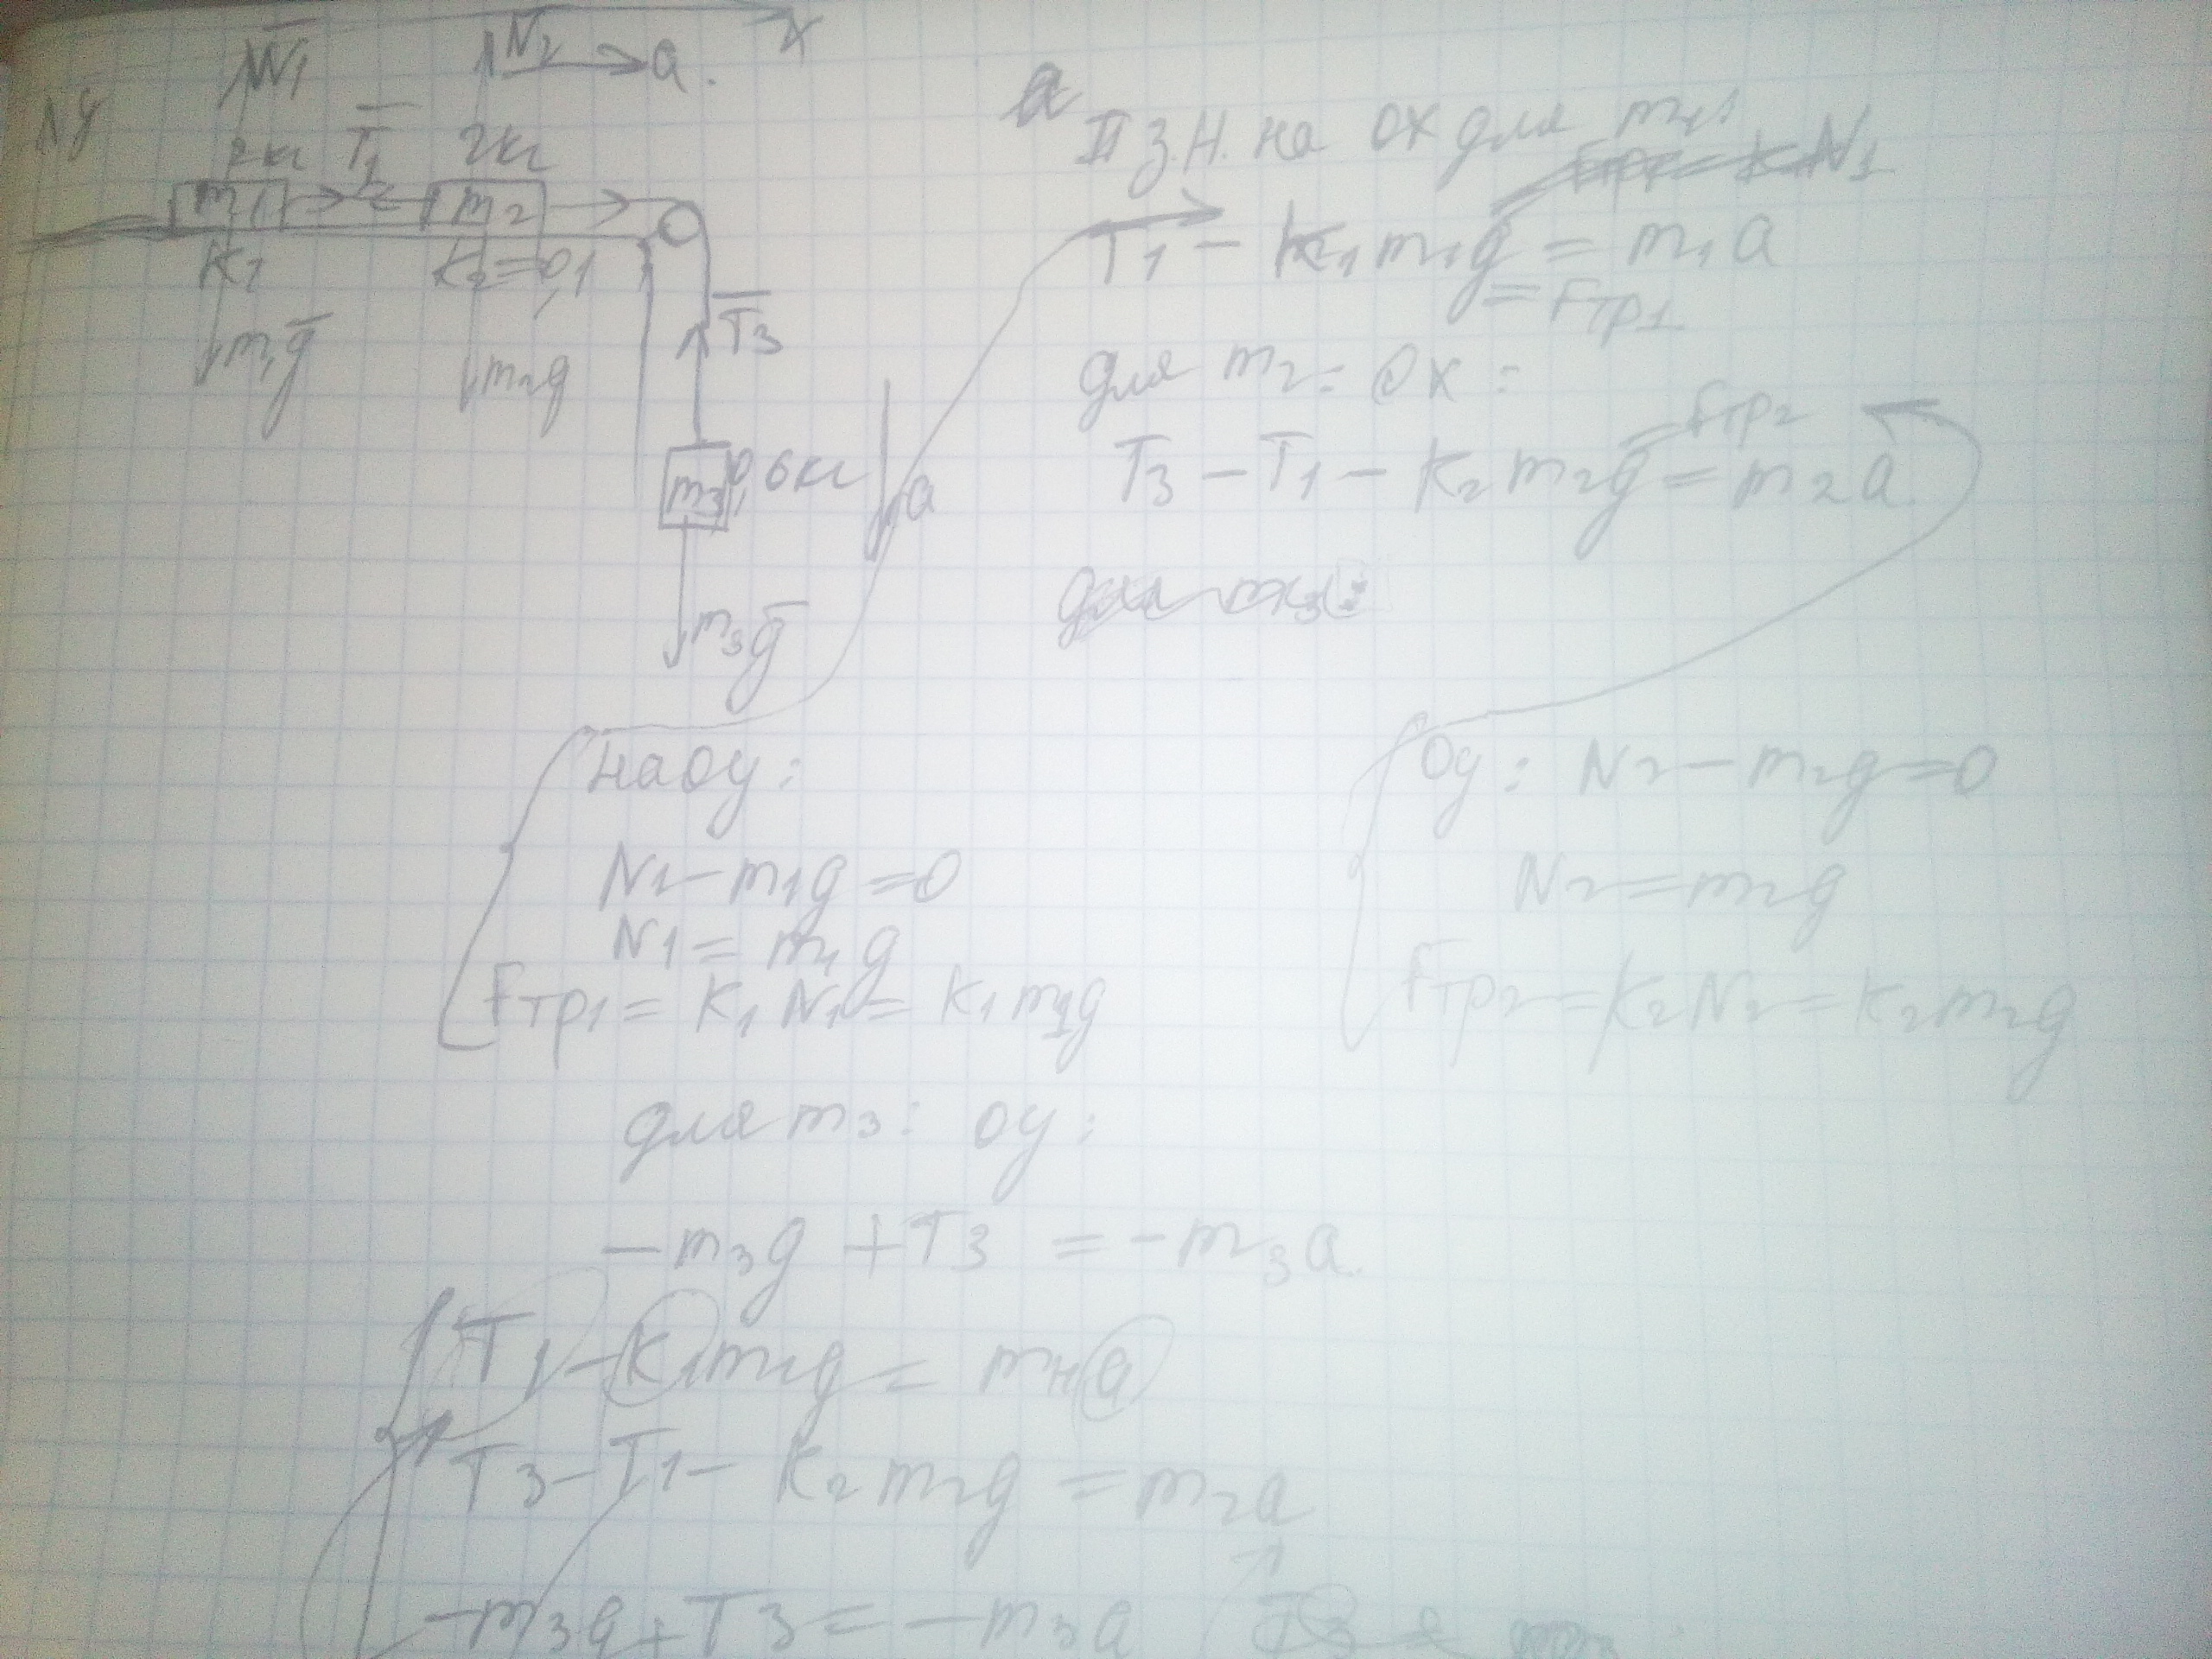 N̅1
N̅2
a.
x
y
2кг
T̅1
2кг
m1
m2
K1
K2=0,1
m1g̅
m2g
T̅3
m3
0,6кг
a
m3g̅
II З.Н. на ОХ для m1:
T1 − K1m1g = m1a
= Fтр1
для m2: ОХ:
= Fтр2
T3 − T1 − K2m2g = m2a
для m3:
на Оу:
N1 − m1g = 0
N1 = m1g
Fтр1 = K1N1 = K1m1g
Оу: N2 − m2g = 0
N2 = m2g
Fтр2 = K2N2 = K2m2g
для m3: оу:
−m3g + T3 = −m3a.
T1 − K1m1g = m1a
T3 − T1 − K2m2g = m2a
−m3g + T3 = −m3a